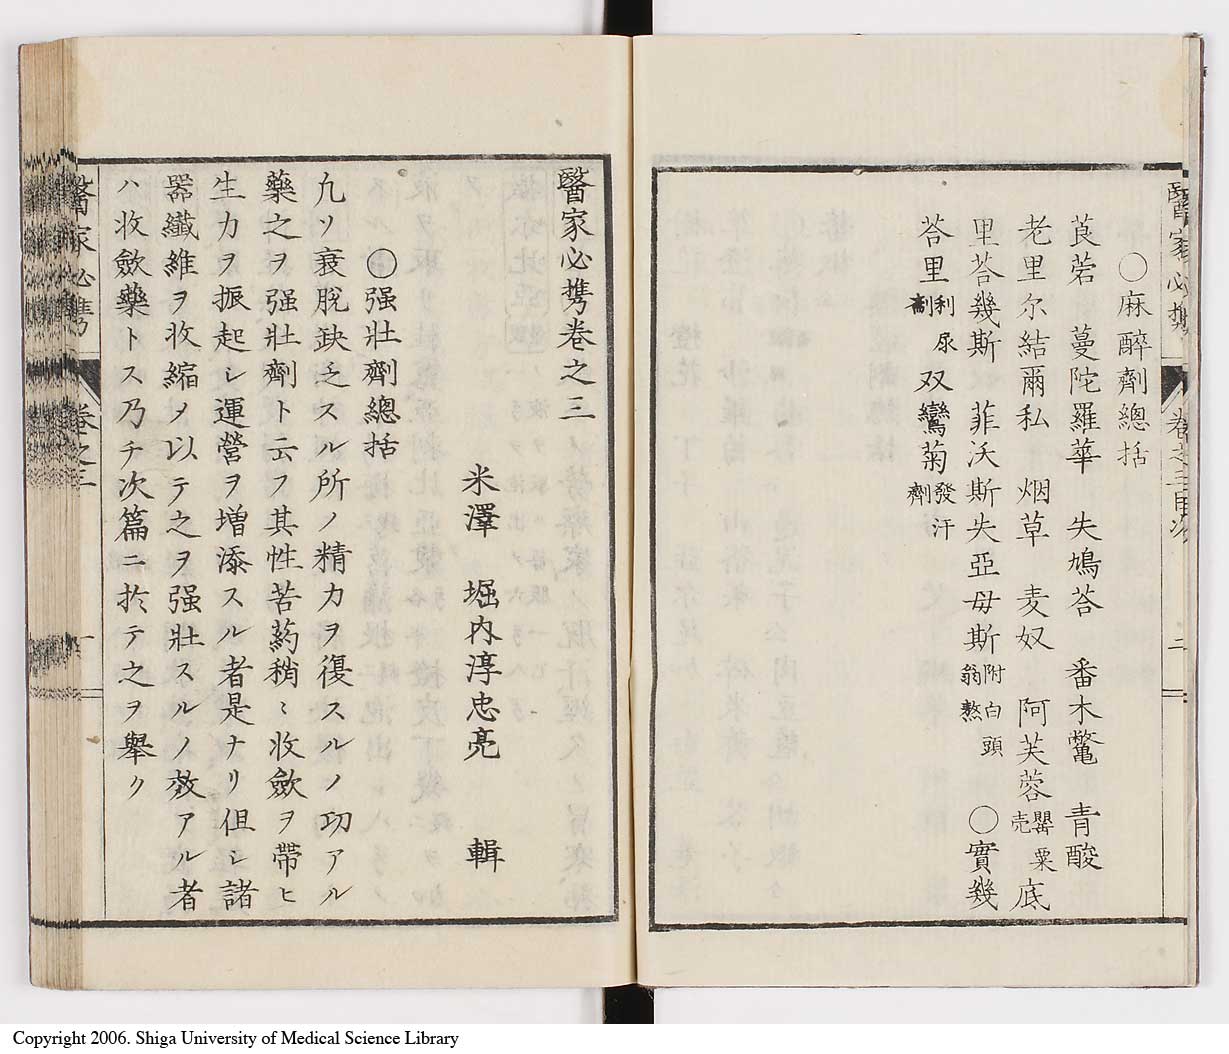 醫家必携 卷之三目次 二
〇麻醉劑總括
莨菪 蔓陀羅華 失鳩荅 番木鼈 青酸
老里尔結爾私 烟草 麦奴 阿芙蓉 罌粟売 底
里荅幾斯 菲沃斯失亞毋斯 附白頭翁熬 〇實幾
荅里 利尿劑 双鸞菊 發汗劑
醫家必携卷之三
米澤 堀内淳忠亮 輯
〇强壯劑總括
九ソ衰脱缺乏スル所ノ精力ヲ復スルノ功アル
藥之ヲ强壯劑ト云フ其性苦葯稍〻收斂ヲ帶ヒ
生力ヲ振起シ運營ヲ増添スル者是ナリ但シ諸
器纖維ヲ收縮メ以テ之ヲ强壯スルノ效アル者
ハ收斂藥トス乃チ次篇ニ於テ之ヲ舉ク
醫家必携 卷之三 一
Copyright 2006. Shiga University of Medical Science Library